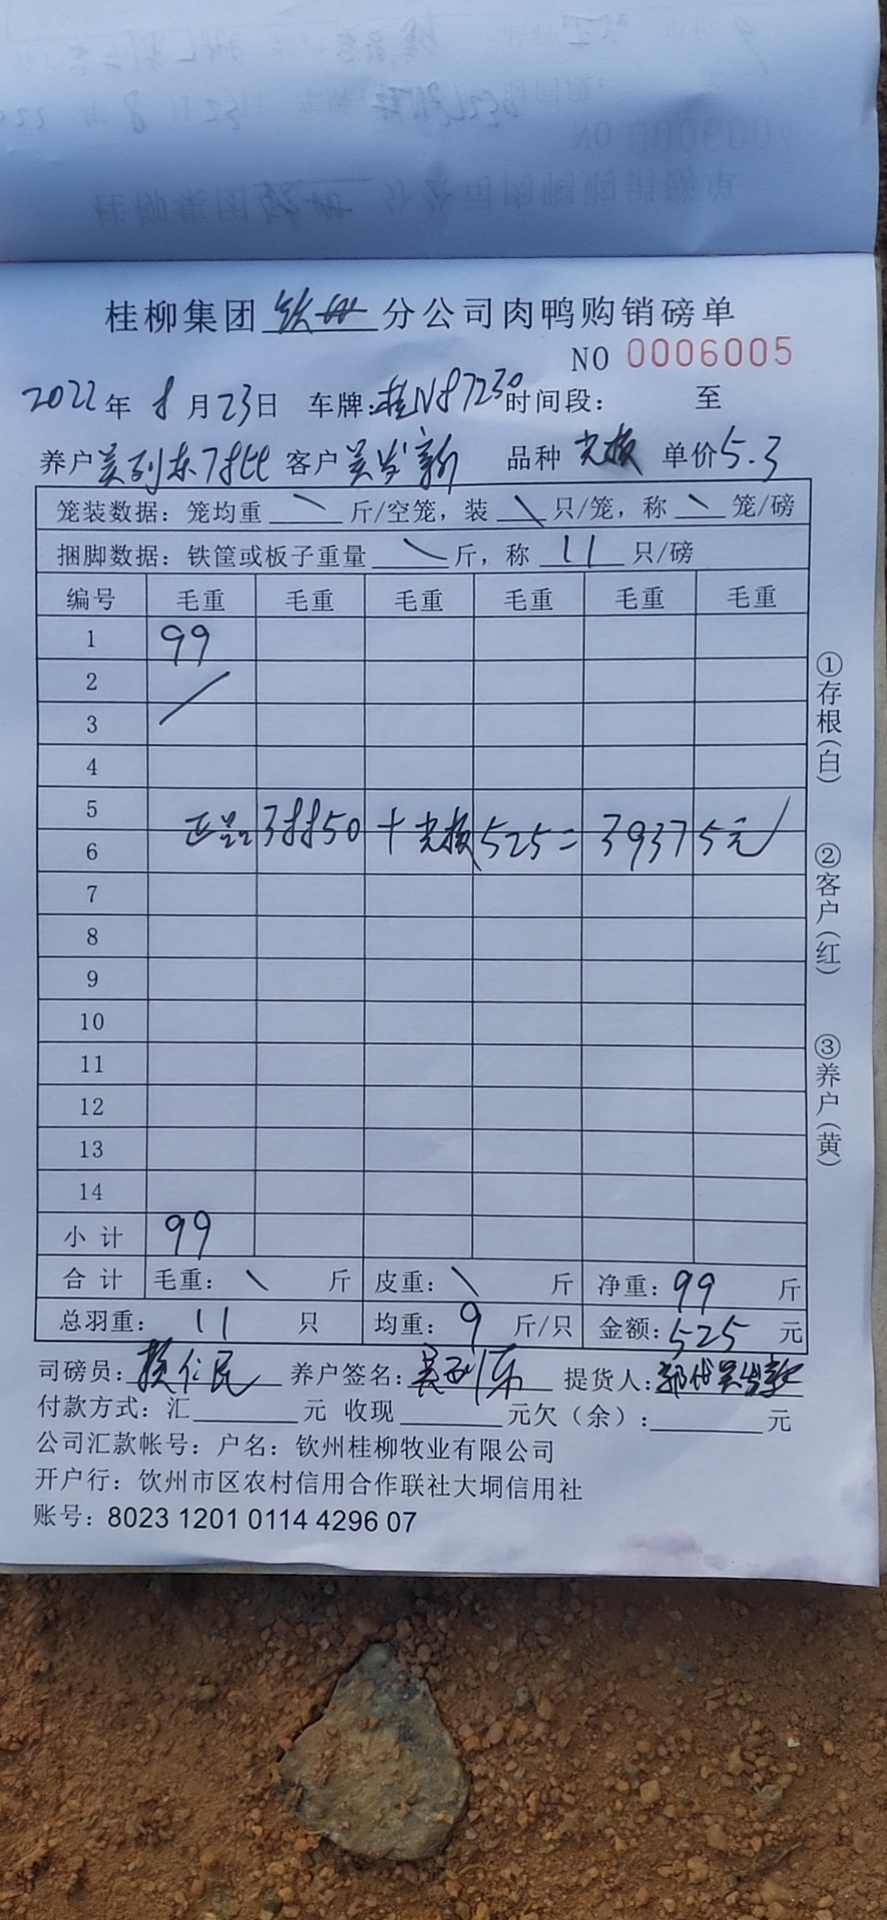 桂柳集团钦州分公司肉鸭购销磅单
NO 0006005
2022年8月23日 车牌:桂N87230 时间段: 至
养户 吴列东 客户 吴发新 品种 单价5.3
笼装数据: 笼均重 \ 斤/空笼, 装 \ 只/笼, 称 \ 笼/磅
捆脚数据: 铁筐或板子重量 \ 斤, 称 11 只/磅
编号 毛重 毛重 毛重 毛重 毛重 毛重
1 99
2
3
4
5
正品38850+ 525=39375元
6
7
8
9
10
11
12
13
14
小计 99
合计 毛重: \ 斤 皮重: \ 斤 净重: 99 斤
总羽重: 11 只 均重: 9 斤/只 金额: 525 元
司磅员: 养户签名: 吴列东 提货人:
付款方式: 汇 元 收现 元欠(余): 元
公司汇款帐号: 户名: 钦州桂柳牧业有限公司
开户行: 钦州市区农村信用合作联社大垌信用社
账号: 8023 1201 0114 4296 07
①存根(白) ②客户(红) ③养户(黄)